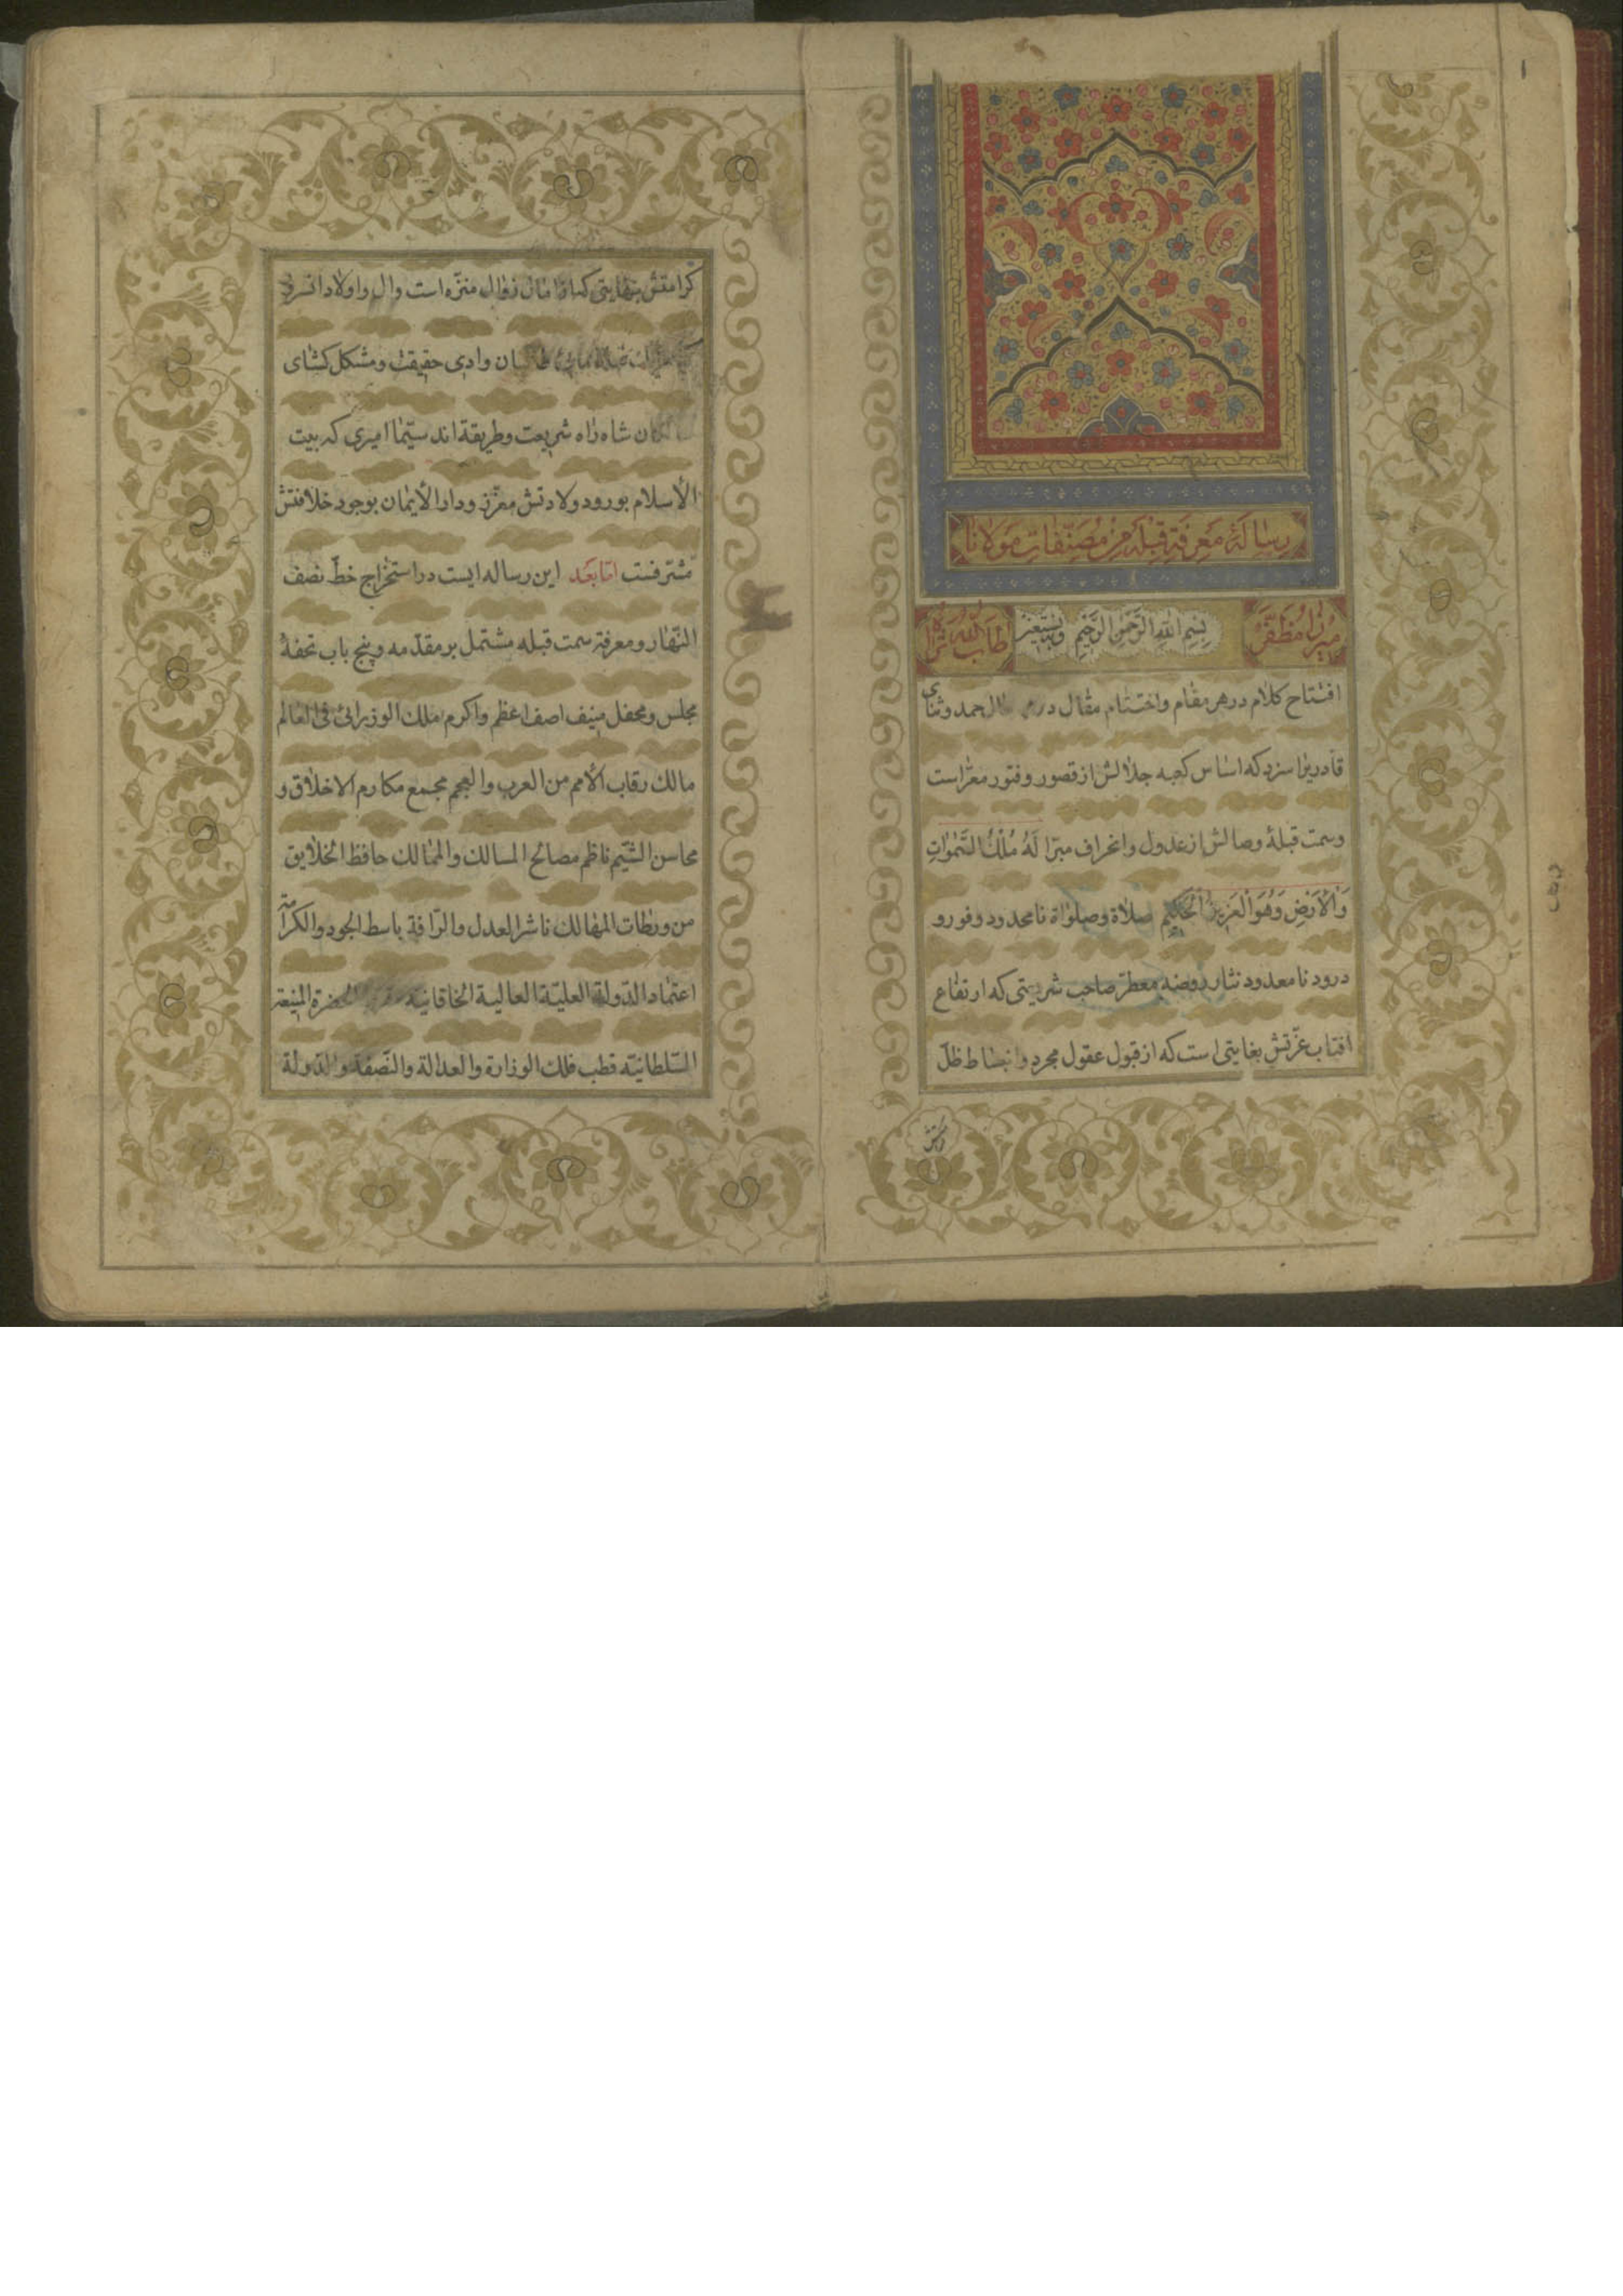 رسالهٔ معرفة قبله من مصنّفات مولانا
میرزا مظفّر
بِسْمِ اللهِ الرَّحْمٰنِ الرَّحِیْمِ وَبِهِ نَسْتَعِیْن
طاب الله ثراه
افتتاح کلام در هر مقام واختتام مقال در حمد وثنای
قادریرا سزد که اساس کعبه جلالش از قصور وفتور معرّاست
وسمت قبلهٔ وصالش از عدول وانحراف مبرّا لَهُ مُلْكُ السَّمٰوَاتِ
وَالْأَرْضِ وَهُوَ الْعَزِيزُ الْحَكِيمُ صلاة وصلواة نامحدود وفور و
درود نامعدود نثار روضه معطّر صاحب شریعتی که ارتفاع
افتاب عزّتش بغایتی است که از قبول عقول مجرد وانبساط ظلّ
کرامتش
کرامتش بنهایتی که از زوال منزّه است وال واولاد
وادی حقیقت ومشکل کشای
شاه راه شریعت وطریقة اند سیّما امیری که بیت
الأسلام بورود ولادتش معزّز ودار الأیمان بوجود خلافتش
مشرّفست امّا بعد این رساله ایست در استخراج خطّ نصف
النّهار ومعرفة سمت قبله مشتمل بر مقدّمه وپنج باب تحفهٔ
مجلس ومحفل منیف اصف اعظم واکرم ملك الوزرائی فی العالم
مالك رقاب الأمم من العرب والعجم مجمع مکارم الاخلاق و
محاسن الشّیم ناظم مصالح المسالك والممالك حافظ الخلایق
من ورطات المهالك ناشر العدل والرّافة باسط الجود والکرامة
اعتماد الدّولة العلیّة العالیة الخاقانیّة الحضرة المنیعة
السّلطانیّه قطب فلك الوزارة والعدالة والنّصفة والدّولة